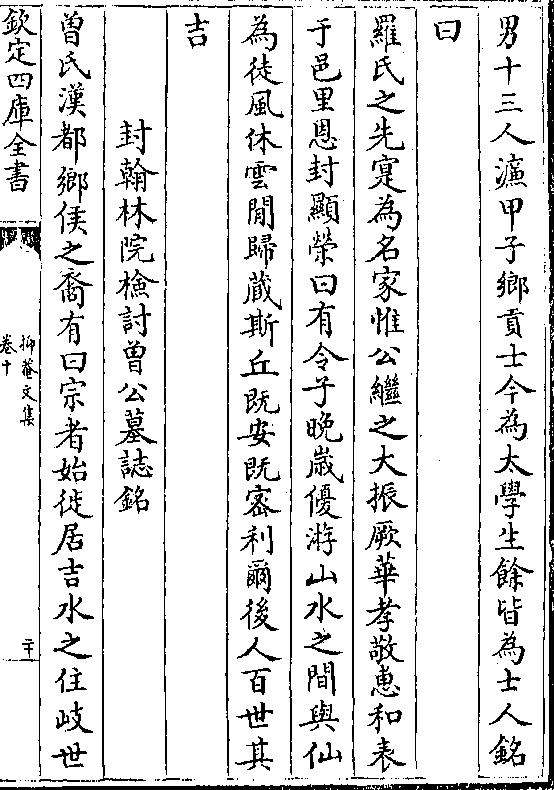 男十三人濂甲子鄉貢士今為太學生餘皆為士人銘
曰
羅氏之先寔為名家惟公繼之大振厥華孝敬惠和表
于邑里恩封顯榮曰有令子晚歲優游山水之間與仙
為徒風休雲閒歸蔵斯丘既安既密利爾後人百世其
吉
封翰林院檢討曾公墓誌銘
曾氏漢都鄉侯之裔有曰宗者始徙居吉水之住岐世
欽定四庫全書
抑菴文集
卷十
二十